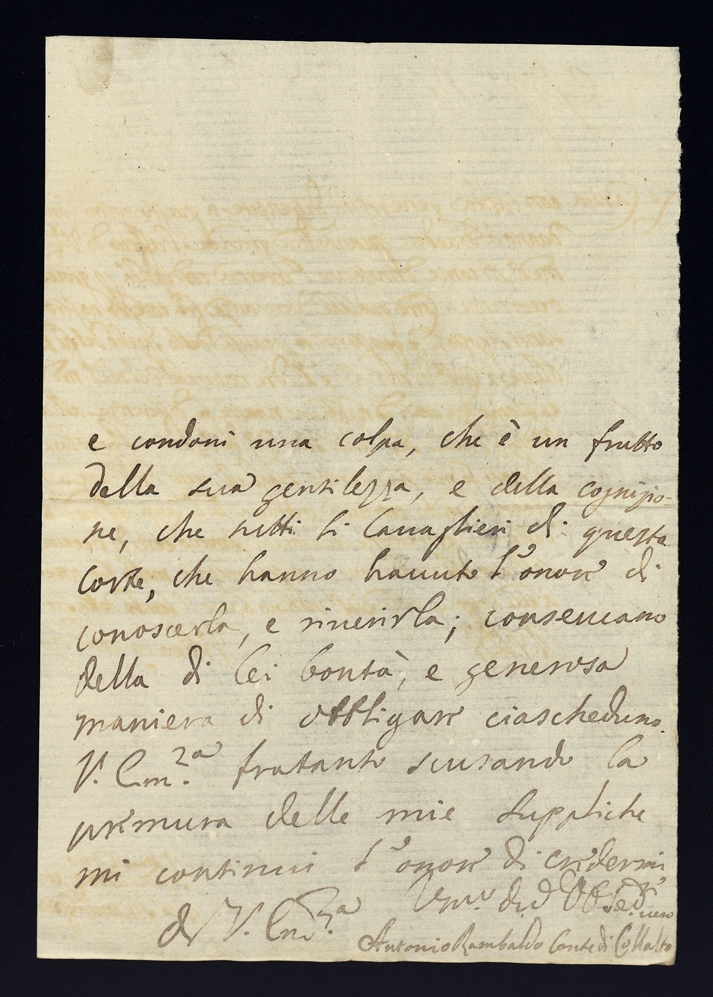 e condoni una colpa, che è un frutto
della sua gentilezza, e della cognizio-
ne, che tutti li Cavaglieri di questa
Corte, che hanno havuto l'onor di
conoscerla, e riverirla; conservano
della di lei bontà, e generosa
maniera di obbligar ciascheduno.
V. Em.za fratanto scusando la
premura delle mie suppliche
mi continui l'onor di credermi
di V. Em.za
Antonio Rambaldo Conte di Collalto